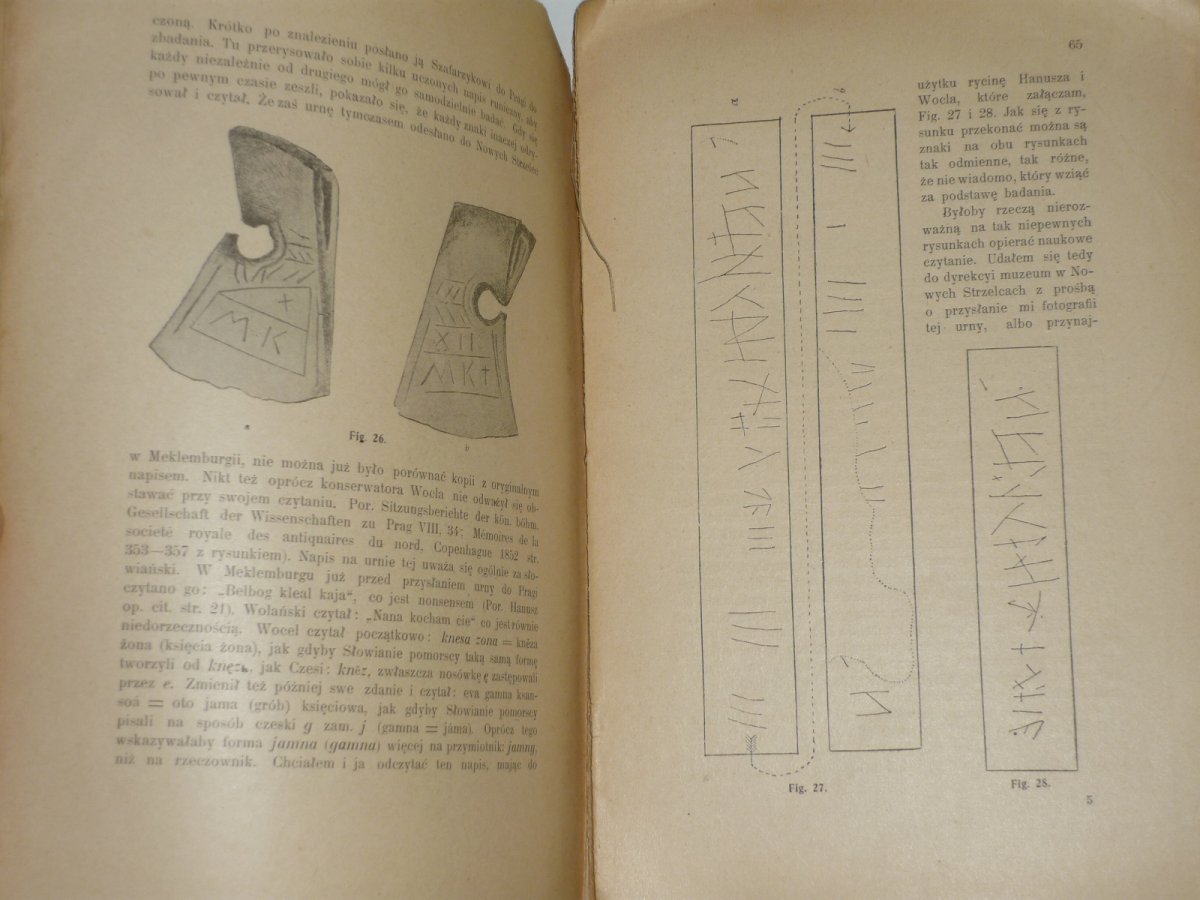 czoną. Krótko po znalezieniu posłano ją Szafarzykowi do Pragi do
zbadania. Tu przerysowało sobie kilku uczonych napis runiczny, aby
każdy niezależnie od drugiego mógł go samodzielnie badać. Gdy się
po pewnym czasie zeszli, pokazało się, że każdy znaki inaczej odry-
sował i czytał. Że zaś urnę tymczasem odesłano do Nowych Strzelec
M K
XII
M K †
a
Fig. 26.
b
w Meklemburgii, nie można już było porównać kopii z oryginalnym
napisem. Nikt też oprócz konserwatora Wocla nie odważył się ob-
stawać przy swojem czytaniu. Por. Sitzungsberichte der kön. böhm.
Gesellschaft der Wissenschaften zu Prag VIII, 34; Mémoires de la
societé royale des antiqnaires du nord, Copenhague 1852 str.
353—357 z rysunkiem). Napis na urnie tej uważa się ogólnie za sło-
wiański. W Meklemburgu już przed przysłaniem urny do Pragi
czytano go: „Belbog kleal kaja“, co jest nonsensem (Por. Hanusz
op. cit. str. 21). Wolański czytał: „Nana kocham cie“ co jest równie
niedorzecznością. Wocel czytał początkowo: knesa zona = knéza
żona (księcia żona), jak gdyby Słowianie pomorscy taką samą formę
tworzyli od knęzъ, jak Czesi: knéz, zwłaszcza nosówkę ę zastępowali
przez e. Zmienił też później swe zdanie i czytał: eva gamna ksan-
soá = oto jama (grób) księciowa, jak gdyby Słowianie pomorscy
pisali na sposób czeski g zam. j (gamna = jáma). Oprócz tego
wskazywałaby forma jamna (gamna) więcej na przymiotnik: jamny,
niż na rzeczownik. Chciałem i ja odczytać ten napis, mając do
65
użytku rycinę Hanusza i
Wocla, które załączam,
Fig. 27 i 28. Jak się z ry-
sunku przekonać można są
znaki na obu rysunkach
tak odmienne, tak różne,
że nie wiadomo, który wziąć
za podstawę badania.
Byłoby rzeczą nieroz-
ważną na tak niepewnych
rysunkach opierać naukowe
czytanie. Udałem się tedy
do dyrekcyi muzeum w No-
wych Strzelcach z prośbą
o przysłanie mi fotografii
tej urny, albo przynaj-
a
b
Fig. 27.
Fig. 28.
5